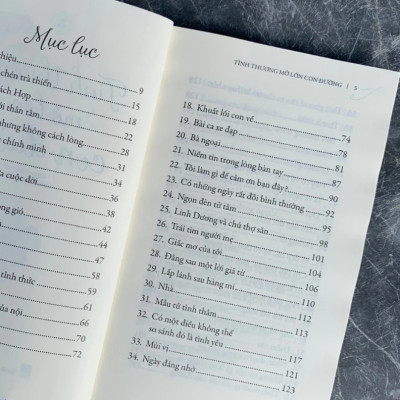 Mục lục
hiệu 9
chén trà thiền 15
ách Hợp 18
ời thân tâm 22
nhưng không cách lòng 28
ý chính mình 31
34
a cuộc đời 36
38
ng gió 42
44
47
58
tỉnh thức 59
61
của nội 66
70
72
TÌNH THƯƠNG MỞ LỚN CON ĐƯỜNG | 5
18. Khuất lối con về 74
19. Bài ca xe đạp 78
20. Bà ngoại 80
21. Niềm tin trong lòng bàn tay 84
22. Tôi làm gì để cảm ơn bạn đây? 88
23. Có những ngày rất đỗi bình thường 92
24. Ngọn đèn từ tâm 95
25. Linh Dương và chú thợ săn 98
26. Trái tim người mẹ 101
27. Giấc mơ của tôi 104
28. Đằng sau một lời giã từ 106
29. Lấp lánh sau hàng mi 110
30. Nhà 113
31. Mẫu tử tình thâm 115
32. Có một điều không thể
so sánh đó là tình yêu 117
33. Mùi vị 121
34. Ngày đáng nhớ 123